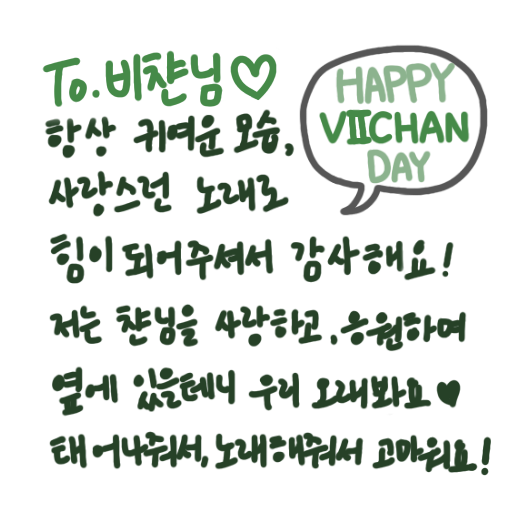 To. 비챤님♡
HAPPY
VIICHAN
DAY
항상 귀여운 모습,
사랑스런 노래로
힘이 되어주셔서 감사해요!
저는 챤님을 사랑하고, 응원하며
옆에 있을테니 우리 오래봐요♥
태어나줘서, 노래해줘서 고마워요!